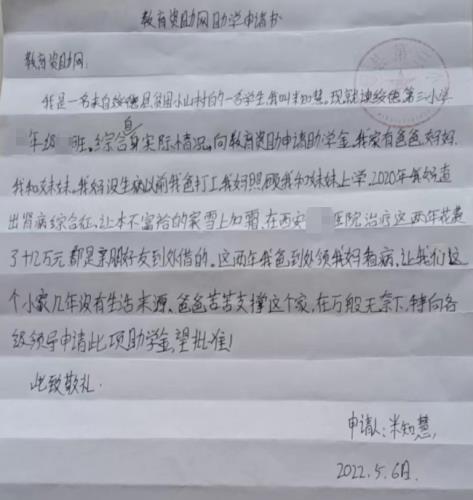 教育资助网助学申请书
教育资助网:
我是一名来自绥德县贫困小山村的一名学生,我叫米知慧。现就读绥德第三小学
年级 班。综合自身实际情况,向教育资助申请助学金。我家有爸爸、妈妈
我和妹妹。我妈没生病以前我爸打工,我妈照顾我和妹妹上学,2020年我妈查
出肾病综合征,让本不富裕的家雪上加霜,在西安 医院治疗这两年花费
了十几万元都是亲朋好友到处借的。这两年我爸到处领我妈看病,让我们这
个小家几年没有生活来源。爸爸苦苦支撑这个家,在万般无奈下,特向各
级领导申请此项助学金,望批准!
此致敬礼.
申请人:米知慧
2022.5.6日.